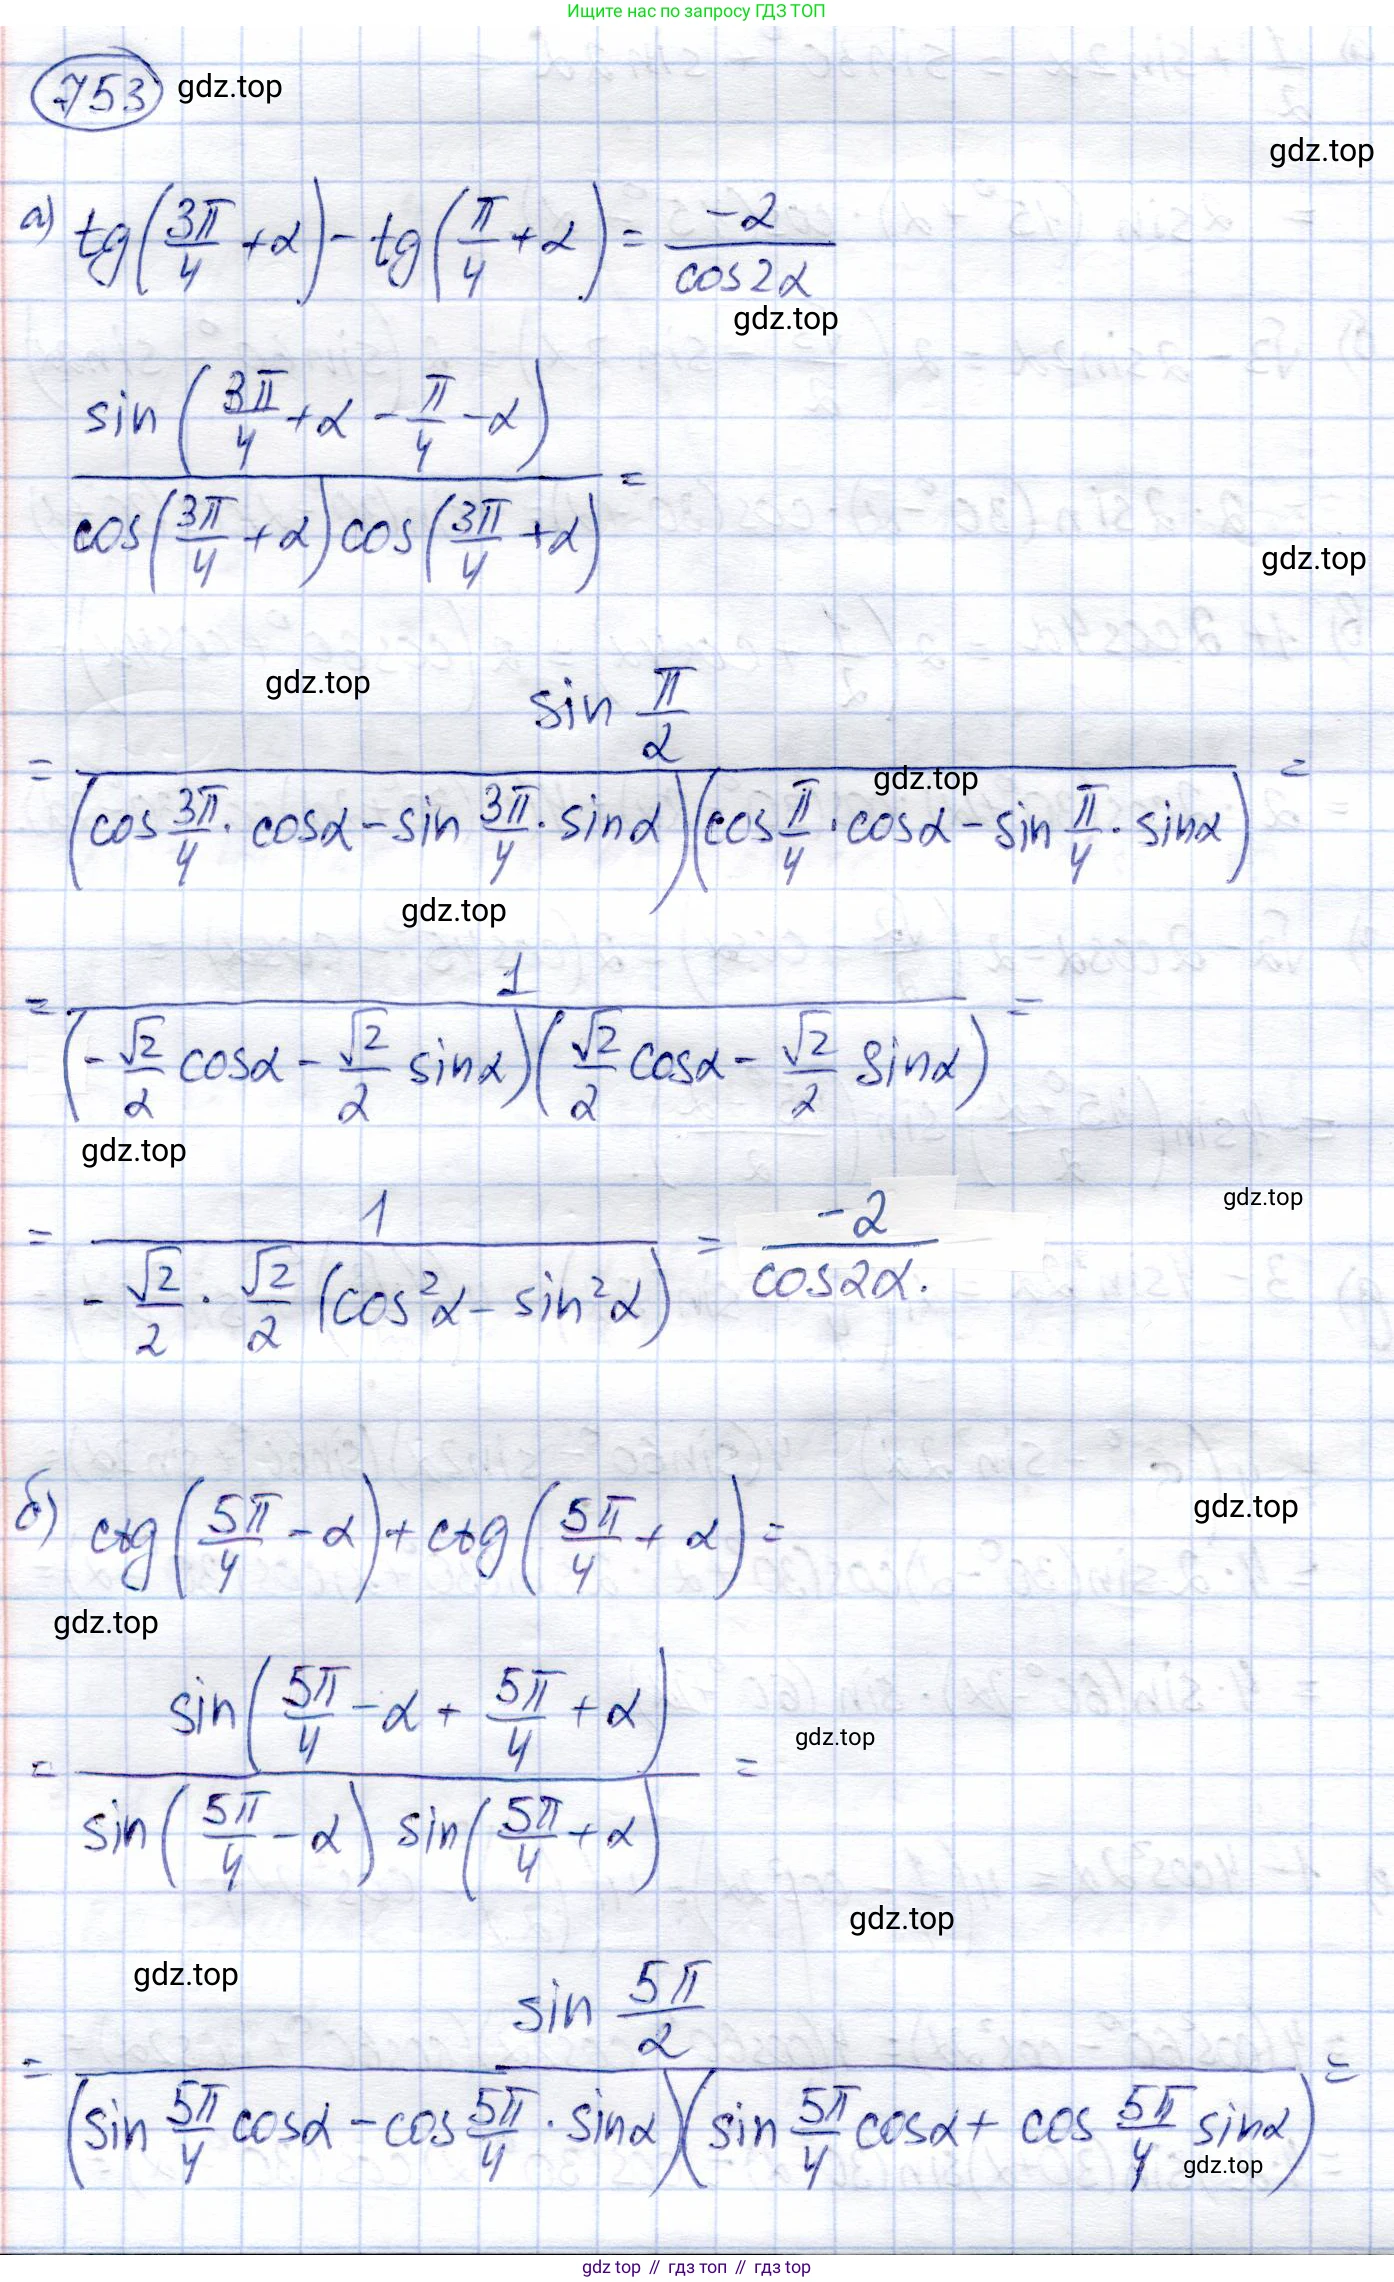 Ищите нас по запросу ГДЗ ТОП
753 gdz.top
gdz.top
а) tg(3π/4 + α) - tg(π/4 + α) = -2/cos2α
gdz.top
sin(3π/4 + α - π/4 - α) / cos(3π/4 + α) cos(3π/4 + α) =
gdz.top
gdz.top
= sin π/2 / (cos 3π/4 · cosα - sin 3π/4 · sinα)(cos π/4 · cosα - sin π/4 · sinα) =
gdz.top
gdz.top
= 1 / (-√2/2 cosα - √2/2 sinα)(√2/2 cosα - √2/2 sinα) =
gdz.top
gdz.top
= 1 / -√2/2 · √2/2 (cos²α - sin²α) = -2/cos2α.
gdz.top
б) ctg(5π/4 - α) + ctg(5π/4 + α) =
gdz.top
= sin(5π/4 - α + 5π/4 + α) / sin(5π/4 - α) sin(5π/4 + α) =
gdz.top
gdz.top
gdz.top
= sin 5π/2 / (sin 5π/4 cosα - cos 5π/4 · sinα)(sin 5π/4 cosα + cos 5π/4 sinα) =
gdz.top
gdz top // гдз топ // гдз top